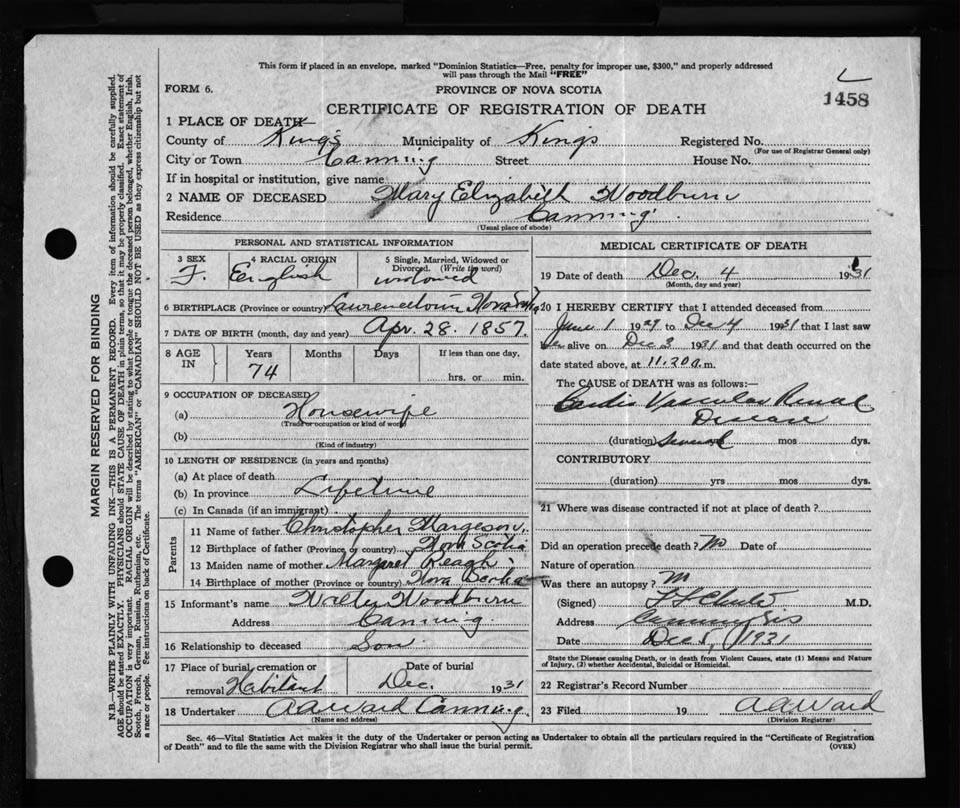 This form if placed in an envelope, marked "Dominion Statistics—Free, penalty for improper use, $300," and properly addressed
will pass through the Mail "FREE"
FORM 6.
PROVINCE OF NOVA SCOTIA
1458
CERTIFICATE OF REGISTRATION OF DEATH
1 PLACE OF DEATH
County of Kings Municipality of Kings Registered No.
(For use of Registrar General only)
City or Town Canning Street House No.
If in hospital or institution, give name
2 NAME OF DECEASED Mary Elizabeth Woodburn
Residence Canning
(Usual place of abode)
PERSONAL AND STATISTICAL INFORMATION
3 SEX 4 RACIAL ORIGIN 5 Single, Married, Widowed or
Divorced. (Write the word)
F. English widowed
6 BIRTHPLACE (Province or country) Lawrencetown Nova Scotia
7 DATE OF BIRTH (month, day and year) Apr. 28. 1857.
8 AGE IN Years Months Days If less than one day,
74
hrs. or min.
9 OCCUPATION OF DECEASED
(a) Housewife
(Trade or occupation or kind of work)
(b)
(Kind of industry)
10 LENGTH OF RESIDENCE (in years and months)
(a) At place of death
(b) In province Lifetime
(c) In Canada (if an immigrant)
Parents
11 Name of father Christopher Margeson
12 Birthplace of father (Province or country) Nova Scotia
13 Maiden name of mother Margaret Reagh
14 Birthplace of mother (Province or country) Nova Scotia
15 Informant's name Walter Woodburn
Address Canning.
16 Relationship to deceased Son
17 Place of burial, cremation or Date of burial
removal Habitant Dec. 1931
18 Undertaker A A Ward Canning
(Name and address)
MEDICAL CERTIFICATE OF DEATH
19 Date of death Dec. 4 1931
(Month, day and year)
20 I HEREBY CERTIFY that I attended deceased from
June 1 1929 to Dec 4 1931 that I last saw
her alive on Dec 3 1931 and that death occurred on the
date stated above, at 11.20 a.m.
The CAUSE of DEATH was as follows:—
Cardio Vascular Renal
Disease
(duration) several mos dys.
CONTRIBUTORY
(duration) yrs mos dys.
21 Where was disease contracted if not at place of death?
Did an operation precede death? No Date of
Nature of operation
Was there an autopsy? No
(Signed) M.D.
Address Canning NS
Date Dec 5, 1931
State the Disease causing Death, or in death from Violent Causes, state (1) Means and Nature
of Injury, (2) whether Accidental, Suicidal or Homicidal.
22 Registrar's Record Number
23 Filed 19 A A Ward
(Division Registrar)
Sec. 46—Vital Statistics Act makes it the duty of the Undertaker or person acting as Undertaker to obtain all the particulars required in the "Certificate of Registration
of Death" and to file the same with the Division Registrar who shall issue the burial permit.
(OVER)
MARGIN RESERVED FOR BINDING
N.B.—WRITE PLAINLY WITH UNFADING INK—THIS IS A PERMANENT RECORD. Every item of information should be carefully supplied.
AGE should be stated EXACTLY. PHYSICIANS should STATE CAUSE OF DEATH in plain terms, so that it may be properly classified. Exact statement of
OCCUPATION is very important. RACIAL ORIGIN will be described by stating to what people or tongue the deceased person belonged, whether English, Irish,
Scotch, French, German, Russian, Ruthenian, etc. The terms "AMERICAN" or "CANADIAN" SHOULD NOT BE USED as they express citizenship but not
a race or people. See instructions on back of Certificate.